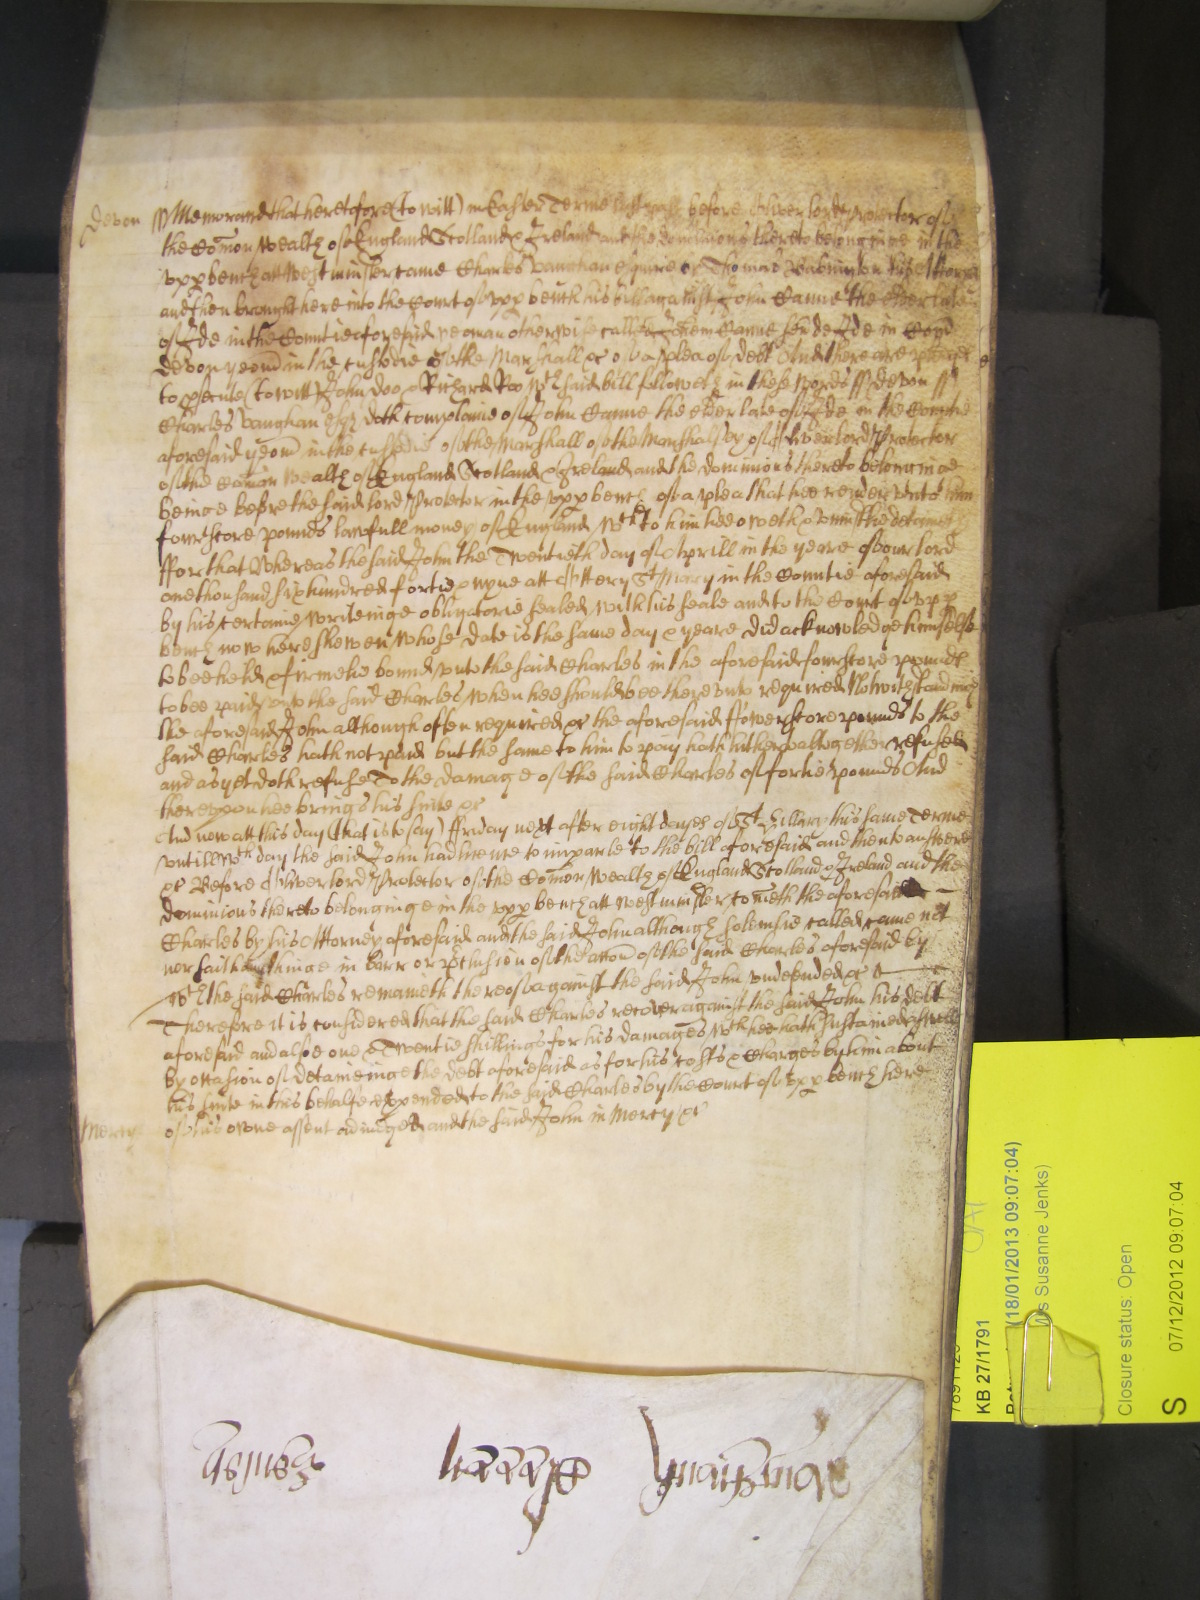 Devon Memorand that heretofore (to witt) in Easter Terme last past before Oliver lord Protector of
the Com̄on Wealth of England Scotland & Ireland and the dominions thereto belonginge in the
upp bench att Westminster came Charles Vaughan esquire by Thomas Babington his Attorny
and then brought here into the Court of upp bench his bill against John Canne the elder late
of Ide in the Countie aforesaid yeoman otherwise called John Canne sen de Ide in Com̄
devon yeom̄ in the custodie of the Marshall &c of a plea of debt And there are pledges
to p̱secute (to witt) John doo & Richard Roo wch said bill followeth in these words ss devon ss
Charles Vaughan Esqr doth complaine of John Canne the elder late of Ide in the Countie
aforesaid yeom̄ in the custodie of the Marshall of the Marshalsey of Oliver lord Protector
of the Com̄on Wealth of England Scotland & Ireland and the dominions thereto belonginge
beinge before the said lord Protector in the upp bench of a plea that hee render unto him
fourscore pounds lawfull money of England wch to him hee oweth & uniustlie detaineth
ffor that Whereas the said John the Twentieth day of Aprill in the yeare of our lord
one thousand six hundred fortie & nyne att Ottery St Mary in the Countie aforesaid
by his certaine writeinge obligatorie sealed with his seale and to the Court of upp
bench now here shewen whose date is the same day & yeare did acknowledge himselfe
to bee held & firmelie bound unto the said Charles in the aforesaid fourscore pounds
to bee paid unto the said Charles when hee should bee thereunto required Notwithstandinge
the aforesaid John although often required &c the aforesaid ffowerscore pounds to the
said Charles hath not paid but the same to him to pay hath hitherto altogether refused
and as yet doth refuse To the damage of the said Charles of fortie pounds And
thereupon hee brings his suite &c
And now att this day (that is to say) ffriday next after eight dayes of St Hillary this same Terme
untill wch day the said John had licence to imparle to the bill aforesaid and then to answere
&c Before Oliver lord Protector of the Com̄on Wealth of England Scotland & Ireland and the
dominions thereto belonginge in the upp bench att Westminster com̄eth the aforesaid
Charles by his Attorney aforesaid and the said John although solemlie called came not
nor saith anythinge in barr or p̱clusion of the acc̄on of the said Charles aforesaid by
wch the said Charles remaineth thereof against the said John undefended &c
Therefore it is considered that the said Charles recover against the said John his debt
aforesaid and alsoe one & Twentie shillings for his damages wch hee hath sustained aswell
by occasion of detaineinge the debt aforesaid as for his costs & charges by him about
his suite in this behalfe expended to the said Charles by the Court of upp bench here
Mercy of his owne assent adiudged and the said John in Mercy &c
KB 27/1791
(18/01/2013 09:07:04)
Mrs Susanne Jenks)
Closure status: Open
S 07/12/2012 09:07:04